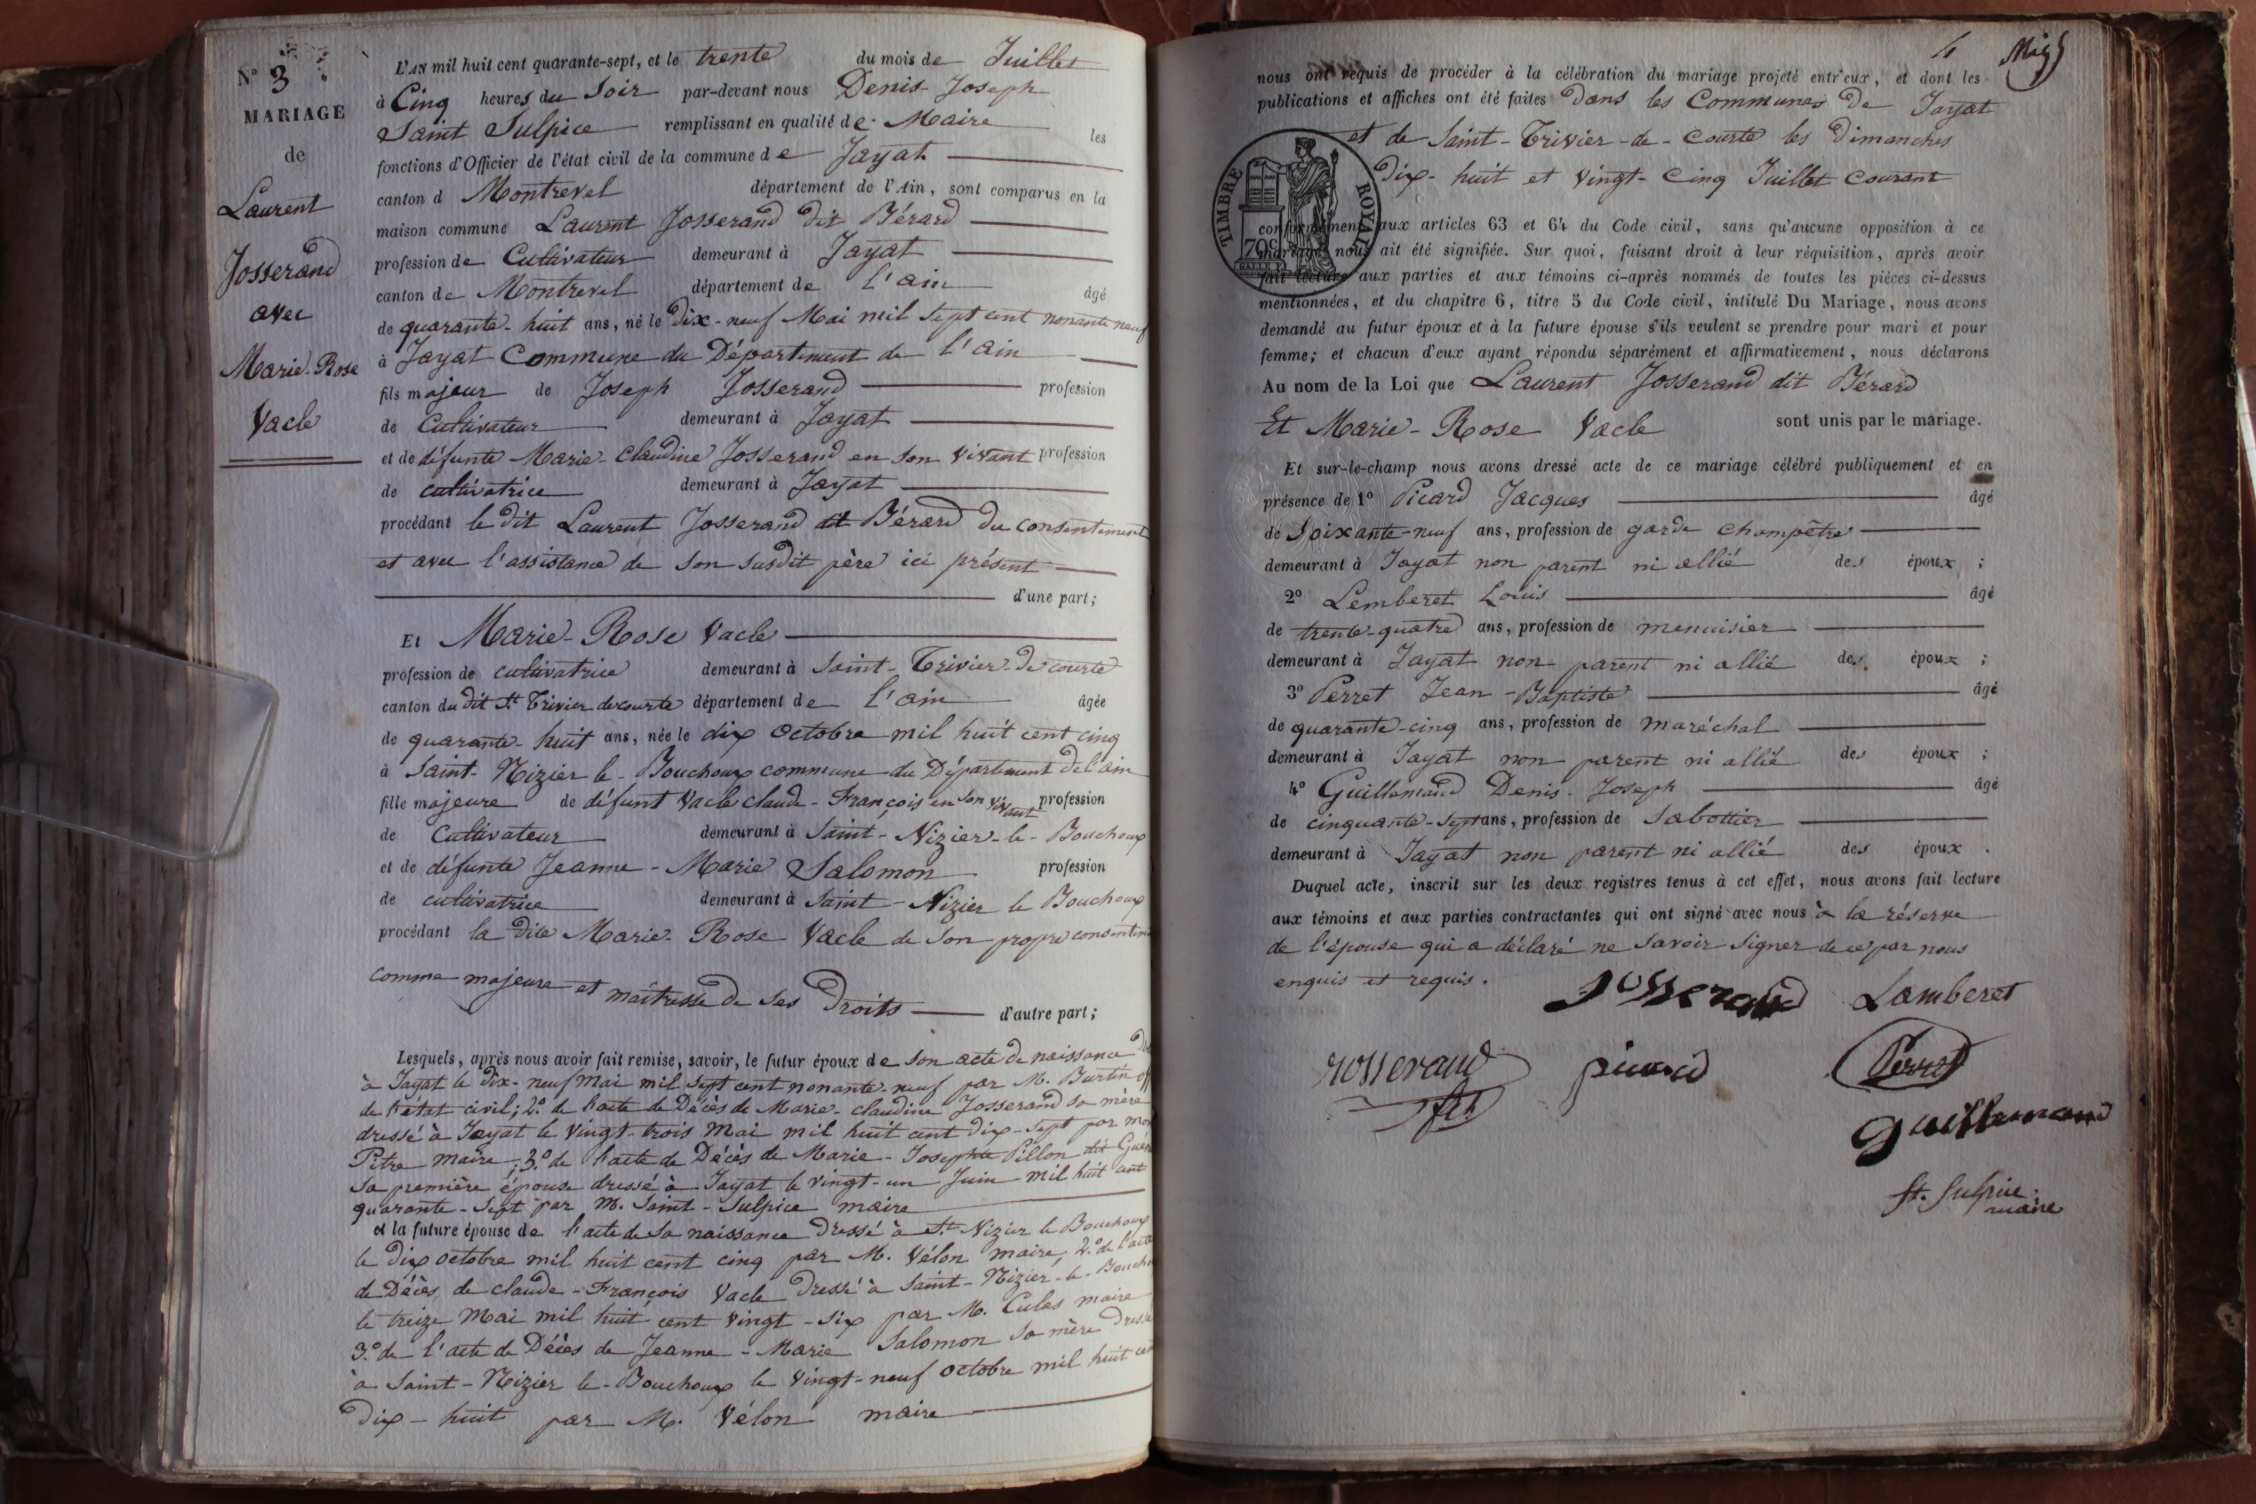 N° 3
MARIAGE
de
Laurent
Josserand
avec
Marie-Rose
Vacle
L'AN mil huit cent quarante-sept, et le trente du mois de Juillet
à Cinq heures du Soir par-devant nous Denis-Joseph
Saint Sulpice remplissant en qualité de Maire les
fonctions d'Officier de l'état civil de la commune de Jayat
canton d Montrevel département de l'Ain, sont comparus en la
maison commune Laurent Josserand dit Bérard
profession de Cultivateur demeurant à Jayat
canton de Montrevel département de l'ain âgé
de quarante-huit ans, né le Dix-neuf Mai mil sept cent nonante neuf
à Jayat Commune du Département de l'ain
fils majeur de Joseph Josserand profession
de Cultivateur demeurant à Jayat
et de défunte Marie-Claudine Josserand en son vivant profession
de cultivatrice demeurant à Jayat
procédant le dit Laurent Josserand dit Bérard du consentement
et avec l'assistance de son susdit père ici présent
d'une part;
Et Marie-Rose Vacle
profession de cultivatrice demeurant à Saint-Trivier-de-courte
canton du dit St Trivier de courte département de l'ain âgée
de quarante-huit ans, née le dix octobre mil huit cent cinq
à Saint-Nizier le-Bouchoux commune du Département de l'ain
fille majeure de défunt Vacle claude-François en son vivant profession
de Cultivateur demeurant à Saint-Nizier-le-Bouchoux
et de défunte Jeanne-Marie Salomon profession
de cultivatrice demeurant à Saint-Nizier le Bouchoux
procédant la dite Marie-Rose Vacle de son propre
comme majeure et maîtresse de ses Droits d'autre part;
Lesquels, après nous avoir fait remise, savoir, le futur époux de son acte de naissance
à Jayat le dix-neuf mai mil sept cent nonante-neuf par M. Burtin off
de l'état civil; 2.° de l'acte de Décès de Marie-claudine Josserand sa mère
dressé à Jayat le vingt-trois Mai mil huit cent dix-sept par
Pitre maire; 3.° de l'acte de Décès de Marie-Josephte Pillon dit
sa première épouse dressé à Jayat le vingt-un Juin mil huit cent
quarante-sept par M. Saint-Sulpice maire
et la future épouse de l'acte de sa naissance dressé à St Nizier le Bouchoux
le dix octobre mil huit cent cinq par M. Vélon maire, 2.° de l'acte
de Décès de claude-François Vacle Dressé à Saint-Nizier-le-Boucho
le treize Mai mil huit cent vingt-six par M. Culas maire
3.° de l'acte de Décès de Jeanne-Marie Salomon sa mère Dressé
à Saint-Nizier le-Bouchoux le vingt-neuf octobre mil huit cent
dix-huit par M. Vélon maire
4
nous ont requis de procéder à la célébration du mariage projeté entr'eux, et dont les
publications et affiches ont été faites dans les Communes de Jayat
et de Saint-Trivier-de-Courte les Dimanches
dix-huit et vingt-Cinq Juillet courant
TIMBRE ROYAL
70c
conformément aux articles 63 et 64 du Code civil, sans qu'aucune opposition à ce
mariage nous ait été signifiée. Sur quoi, faisant droit à leur réquisition, après avoir
fait lecture aux parties et aux témoins ci-après nommés de toutes les pièces ci-dessus
mentionnées, et du chapitre 6, titre 5 du Code civil, intitulé Du Mariage, nous avons
demandé au futur époux et à la future épouse s'ils veulent se prendre pour mari et pour
femme; et chacun d'eux ayant répondu séparément et affirmativement, nous déclarons
Au nom de la Loi que Laurent Josserand dit Bérard
Et Marie-Rose Vacle sont unis par le mariage.
Et sur-le-champ nous avons dressé acte de ce mariage célébré publiquement et en
présence de 1° Picard Jacques âgé
de Soixante-neuf ans, profession de garde champêtre
demeurant à Jayat non parent ni allié des époux ;
2° Lemberet Louis âgé
de trente-quatre ans, profession de menuisier
demeurant à Jayat non parent ni allié des époux ;
3° Perret Jean-Baptiste âgé
de quarante-cinq ans, profession de maréchal
demeurant à Jayat non parent ni allié des époux ;
4° Guillemand Denis-Joseph âgé
de cinquante-sept ans, profession de Sabottier
demeurant à Jayat non parent ni allié des époux .
Duquel acte, inscrit sur les deux registres tenus à cet effet, nous avons fait lecture
aux témoins et aux parties contractantes qui ont signé avec nous à la réserve
de l'épouse qui a déclaré ne savoir signer de ce par nous
enquis et requis.
Josserand Lamberet
Josserand picard Perret
Guillemand
St. Sulpice
maire